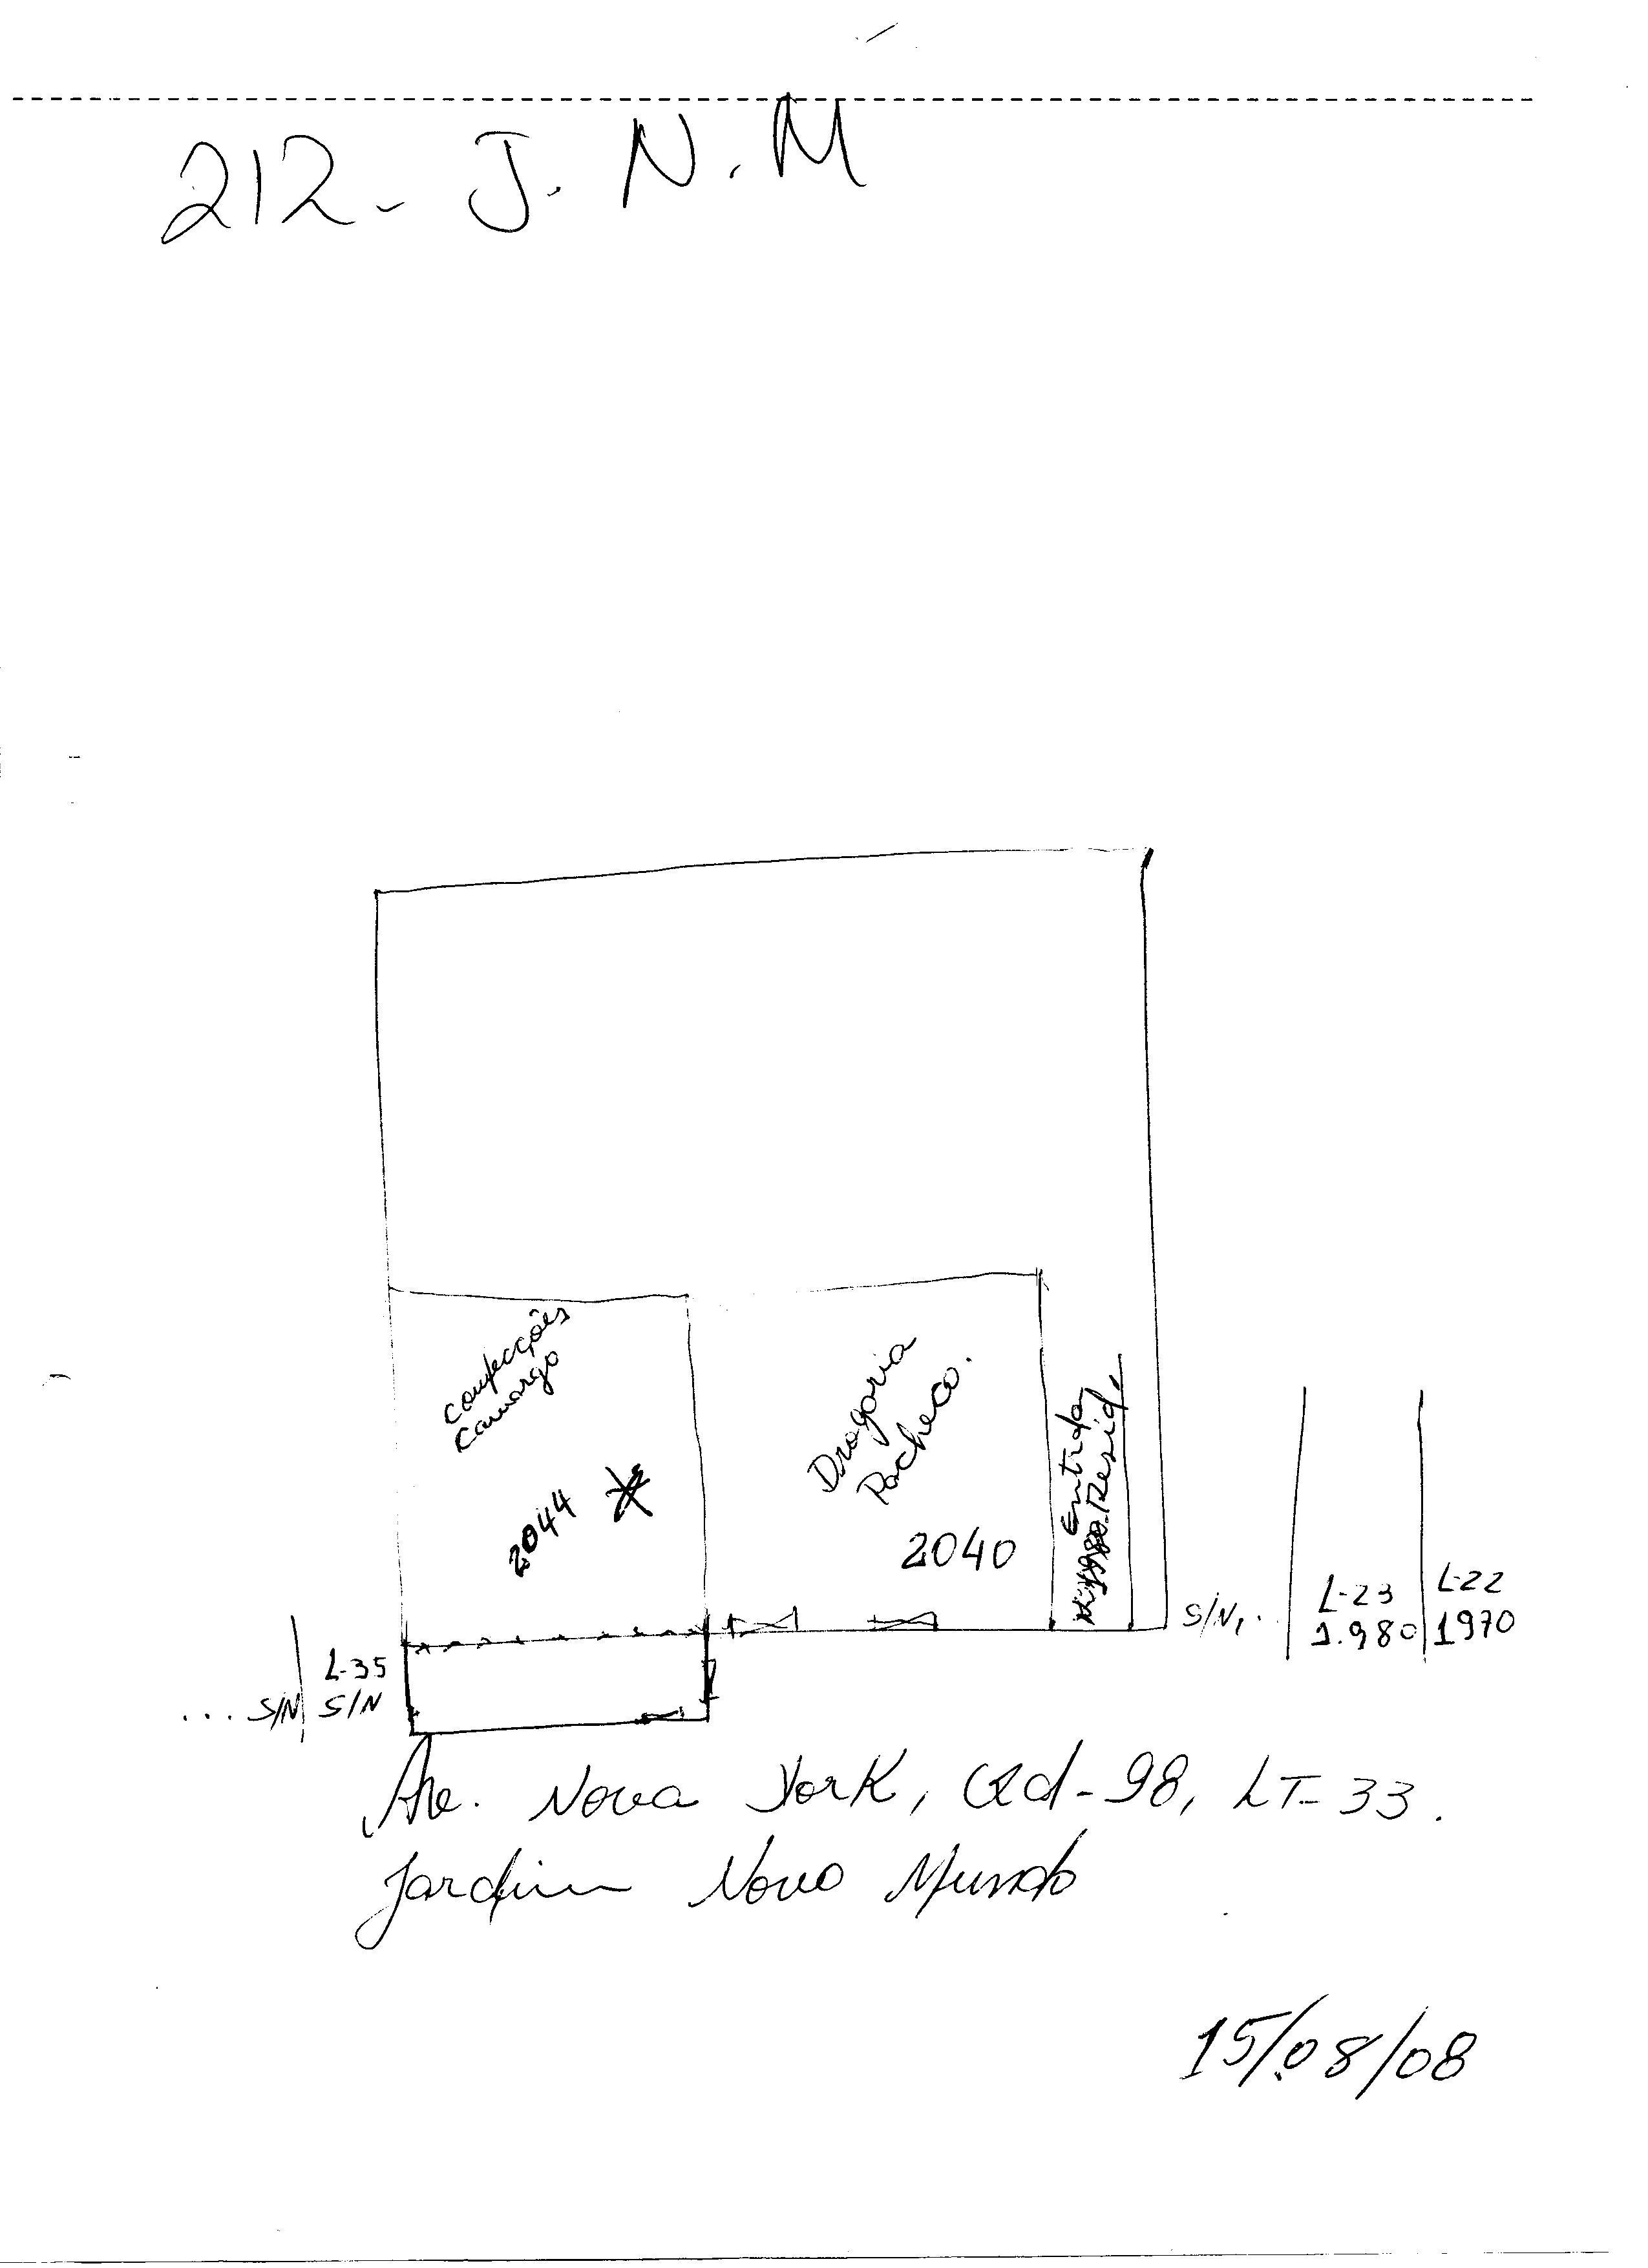 212- J. N. M
confecções
Camargo
2044
Drogaria
Pacheco.
2040
Entrada
Resid.
S/N,..
L-23
1.980
L-22
1970
L-35
... S/N S/N
Ave. Nova York, Qd-98, LT-33.
Jardim Novo Mundo
15/08/08